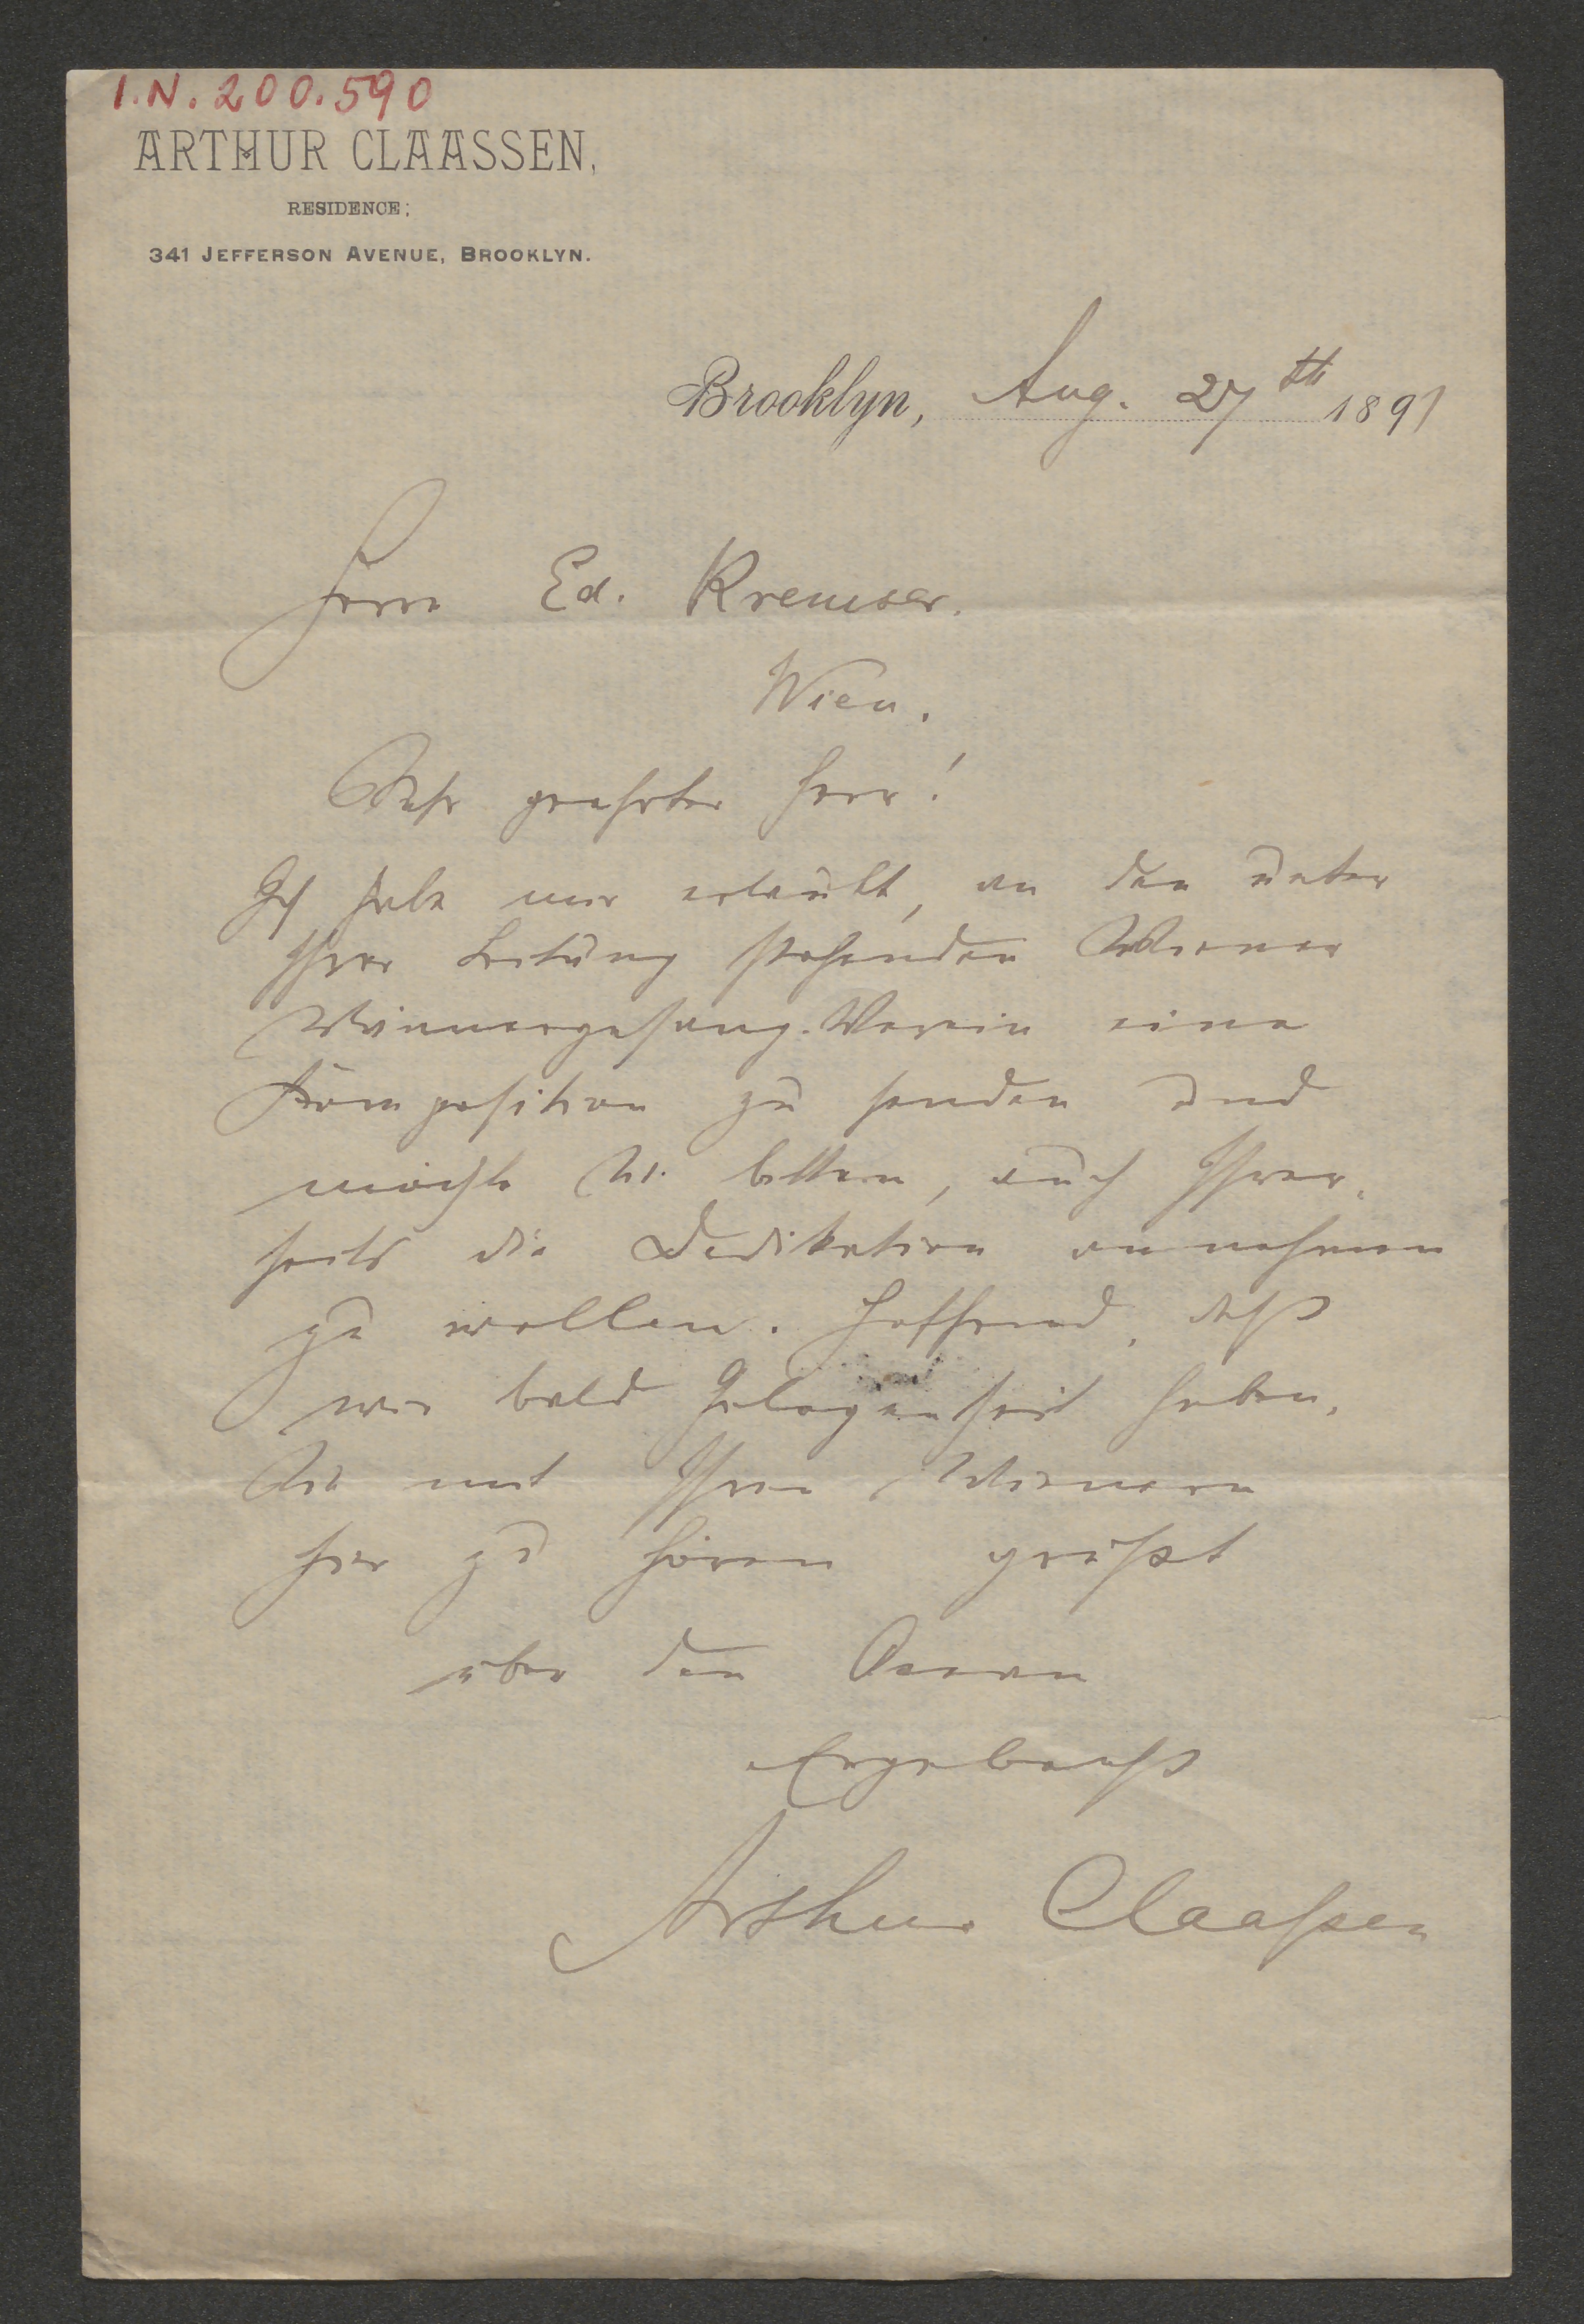 I.N. 200.590
ARTHUR CLAASSEN,
RESIDENCE:
341 JEFFERSON AVENUE, BROOKLYN.
Brooklyn, Aug. 27th 1891
Herrn Ed. Kremser.
Wien.
Sehr geehrter Herr!
Ich habe mir erlaubt, an den unter
Ihrer Leitung stehenden Wiener
Männergesang-Verein eine
Komposition zu senden und
möchte Sie bitten, auch Ihrer-
seits die Dedikation annehmen
zu wollen. Hoffend, daß
wir bald Gelegenheit haben,
Sie mit Ihren Wienern
hier zu hören grüßt
über den Ocean
Ergebenst
Arthur Claassen